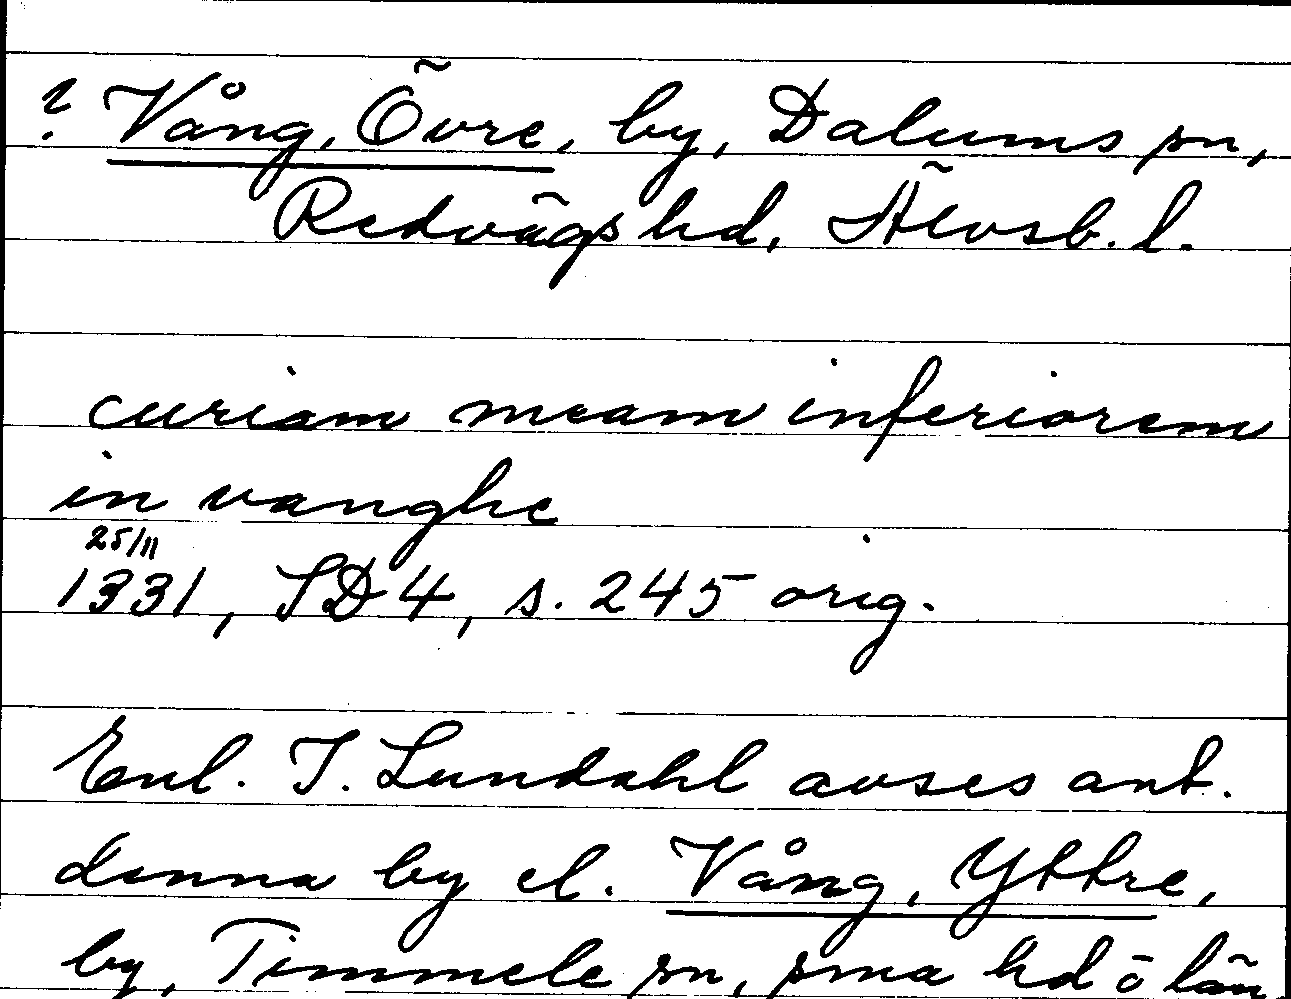 ? Vång, Övre, by, Dalums sn,
Redvägs hd, Älvsb. l.
curiam meam inferiorem
in vanghe
25/11
1331, SD 4, s. 245 orig.
Enl. I. Lundahl avses ant.
denna by el. Vång, Yttre,
by, Timmele sn, sma hd o län